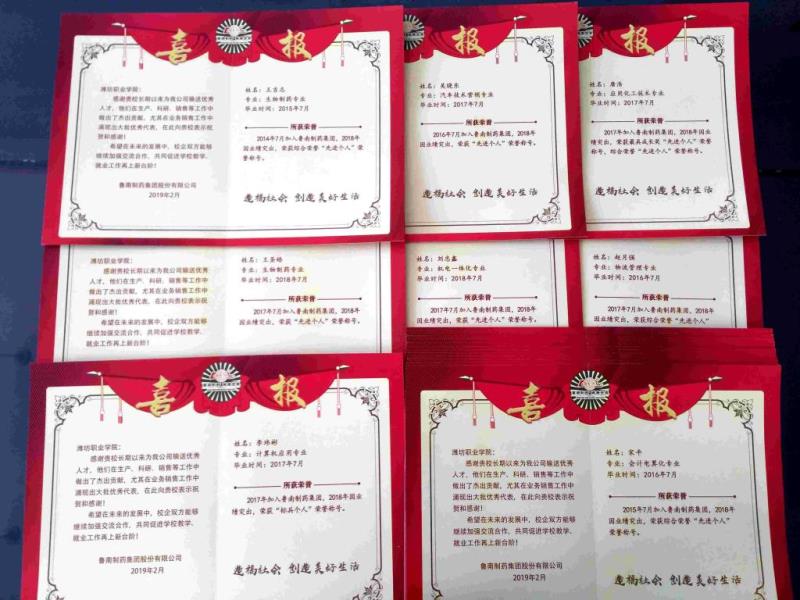 喜报
潍坊职业学院：
感谢贵校长期以来为我公司输送优秀
人才，他们在生产、科研、销售等工作中
做出了杰出贡献，尤其在业务销售工作中
涌现出大批优秀代表，在此向贵校表示祝
贺和感谢！
希望在未来的发展中，校企双方能够
继续加强交流合作，共同促进学校教学、
就业工作再上新台阶！
鲁南制药集团股份有限公司
2019年2月
姓名：王吉志
专业：生物制药专业
毕业时间：2015年7月
所获荣誉
2014年7月加入鲁南制药集团，2018年
因业绩突出，荣获综合荣誉“先进个人”
荣誉称号。
造福社会 创造美好生活
报
姓名：吴晓东
专业：汽车技术营销专业
毕业时间：2017年7月
所获荣誉
2016年7月加入鲁南制药集团，2018年
因业绩突出，荣获综合荣誉“先进个人”
荣誉称号。
造福社会 创造美好生活
报
姓名：唐浩
专业：应用化工技术专业
毕业时间：2017年7月
所获荣誉
2017年7月加入鲁南制药集团，2018年
因业绩突出，荣获最具成长奖“先进个人”荣
誉称号、综合荣誉“先进个人”荣誉称号。
造福社会 创造美好生活
潍坊职业学院：
感谢贵校长期以来为我公司输送优秀
人才，他们在生产、科研、销售等工作中
做出了杰出贡献，尤其在业务销售工作中
涌现出大批优秀代表，在此向贵校表示祝
贺和感谢！
希望在未来的发展中，校企双方能够
继续加强交流合作，共同促进学校教学、
就业工作再上新台阶！
专业：生物制药专业
毕业时间：2018年7月
所获荣誉
2017年7月加入鲁南制药集团，2018年
因业绩突出，荣获“先进个人”荣誉称号。
姓名：刘志鑫
专业：机电一体化专业
毕业时间：2018年7月
所获荣誉
2017年7月加入鲁南制药集团，2018年
因业绩突出，荣获“先进个人”荣誉称号。
姓名：赵月强
专业：物流管理专业
毕业时间：2016年7月
所获荣誉
2017年7月加入鲁南制药集团，2018年
因业绩突出，荣获综合荣誉“先进个人”
荣誉称号。
喜报
潍坊职业学院：
感谢贵校长期以来为我公司输送优秀
人才，他们在生产、科研、销售等工作中
做出了杰出贡献，尤其在业务销售工作中
涌现出大批优秀代表，在此向贵校表示祝
贺和感谢！
希望在未来的发展中，校企双方能够
继续加强交流合作，共同促进学校教学、
就业工作再上新台阶！
鲁南制药集团股份有限公司
2019年2月
姓名：李玮彬
专业：计算机应用专业
毕业时间：2017年7月
所获荣誉
2017年加入鲁南制药集团，2018年因业
绩突出，荣获“标兵个人”荣誉称号。
造福社会 创造美好生活
喜报
潍坊职业学院：
感谢贵校长期以来为我公司输送优秀
人才，他们在生产、科研、销售等工作中
做出了杰出贡献，尤其在业务销售工作中
涌现出大批优秀代表，在此向贵校表示祝
贺和感谢！
希望在未来的发展中，校企双方能够
继续加强交流合作，共同促进学校教学、
就业工作再上新台阶！
鲁南制药集团股份有限公司
2019年2月
姓名：宋平
专业：会计电算化专业
毕业时间：2016年7月
所获荣誉
2015年7月加入鲁南制药集团，2018年
因业绩突出，荣获综合荣誉“先进个人”
荣誉称号。
造福社会 创造美好生活